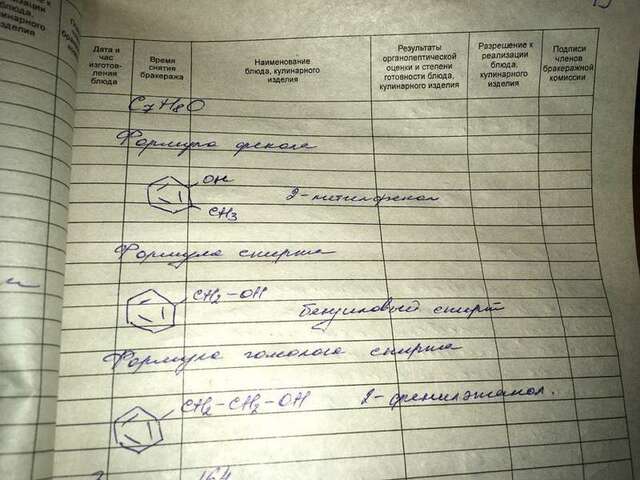 ления к
блюда,
кулинарного
изделия
Дата и
час
изготов-
ления
блюда
Время
снятия
бракеража
Наименование
блюда, кулинарного
изделия
Результаты
органолептической
оценки и степени
готовности блюда,
кулинарного изделия
Разрешение к
реализации
блюда,
кулинарного
изделия
Подписи
членов
бракеражной
комиссии
C7H8O
Формула фенола
OH
CH3
2-метилфенол
Формула спирта
CH2-OH
бензиловый спирт
Формула гомолога спирта
CH2-CH2-OH
2-фенилэтанол.
164